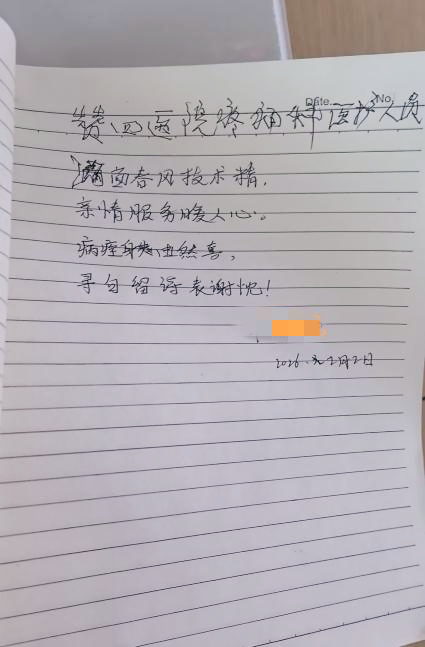 Date No.
赞四医院疼痛科医护人员
满面春风技术精，
亲情服务暖人心。
病痊身爽由然喜，
寻句留谆表谢忱！
2026.元2月2日